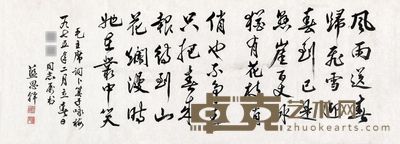 風雨送春
歸飛雪迎
春到已是
懸崖百丈冰
猶有花枝俏
俏也不争春
只把春来
報待到山
花爛漫時
她在叢中笑
毛主席詞卜算子咏梅
一九七五年二月立春日
同志属书